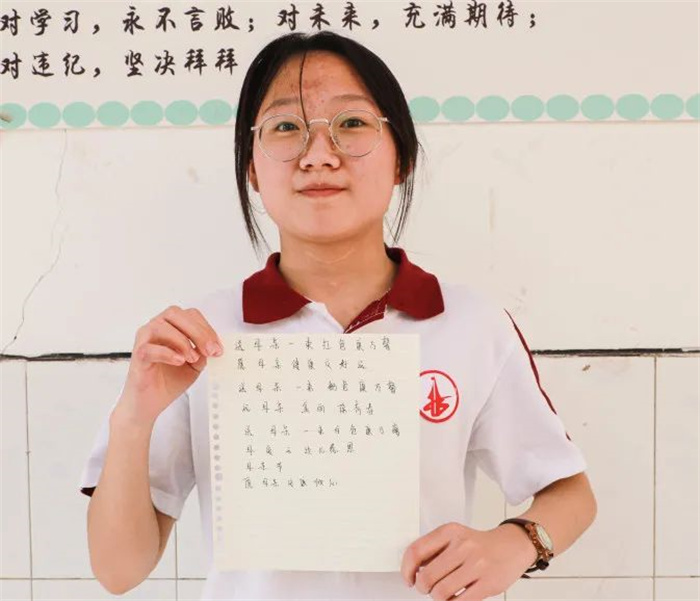 对学习，永不言败；对未来，充满期待；
对违纪，坚决拜拜
送母亲一束红色康乃馨
愿母亲健康又好运
送母亲一束粉色康乃馨
祝母亲美丽
送母亲一束白色康乃馨
母爱之
母亲节
愿母亲